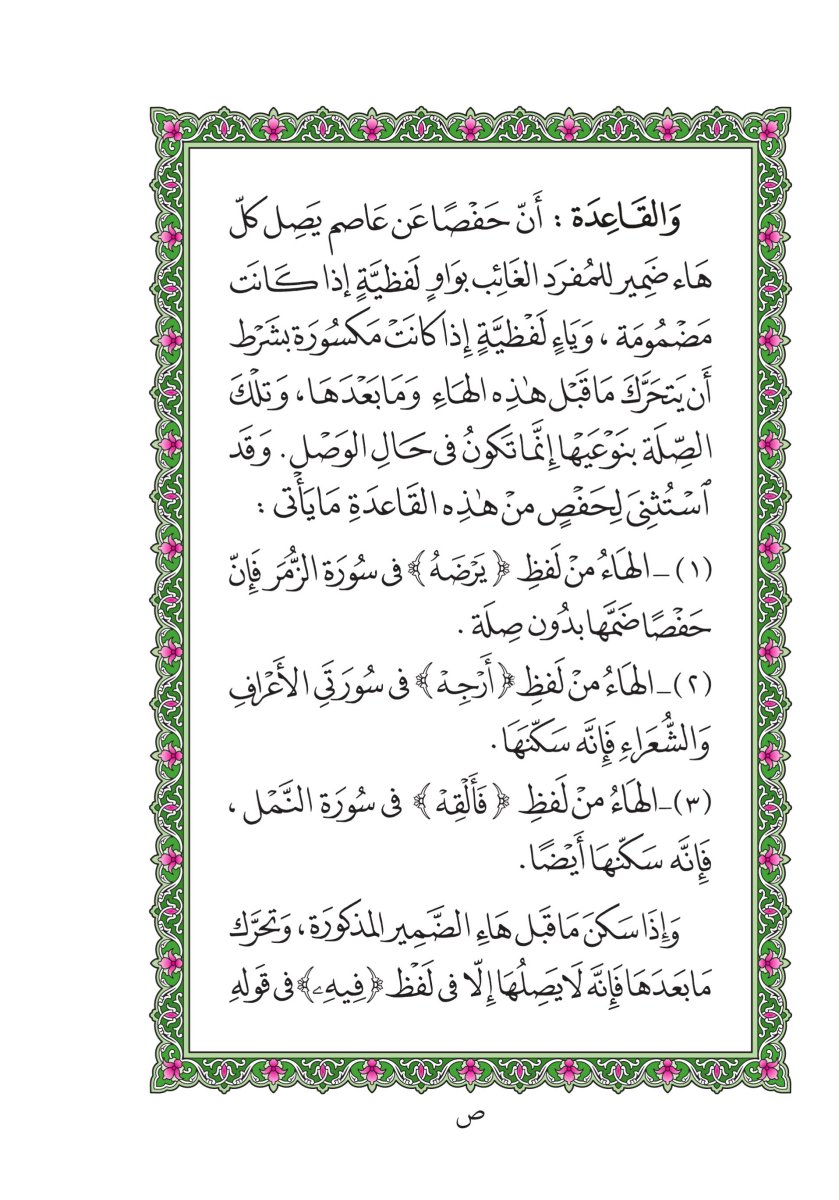 وَالقَاعِدَة : أَنّ حَفْصًا عَن عَاصم يَصِل كلّ
هَاء ضَمِير للمُفرَدِ الغَائِب بوَاوٍ لَفظِيَّةٍ إذا كَانَت
مَضْمُومَة ، وَيَاءٍ لَفْظِيَّةٍ إِذا كانَتْ مَكسُورَة بشَرْط
أَن يَتحَرَّكَ مَا قَبْل هٰذِه الهَاءِ وَمَا بَعْدَهَا ، وَتلْكَ
الصِّلَة بنَوْعَيْهَا إِنَّمَا تَكونُ فى حَالِ الوَصْلِ . وَقَد
ٱسْتُثنِىَ لِحَفْصٍ منْ هٰذِه القَاعدَةِ مَا يَأْتى :
(١) ـ الهَاءُ منْ لَفظِ ﴿ يَرْضَهُ ﴾ فى سُورَة الزُّمَر فَإِنّ
حَفْصًا ضَمَّها بدُون صِلَة .
(٢) ـ الهَاءُ منْ لَفظِ ﴿ أَرْجِهْ ﴾ فى سُورَتَيِ الأَعْرَافِ
وَالشُّعَرَاءِ فَإِنَّه سَكّنهَا .
(٣) ـ الهَاءُ منْ لَفظِ ﴿ فَأَلْقِهْ ﴾ فى سُورَة النَّمْل ،
فَإِنَّه سَكّنهَا أَيْضًا .
وَإِذَا سَكنَ مَا قَبل هَاءِ الضَّمِير المذكورَة ، وَتحرَّك
مَا بَعدَهَا فَإِنَّه لَا يَصِلُهَا إِلّا فى لَفْظ ﴿ فِيهِۦ ﴾ فى قَولهِ
ص